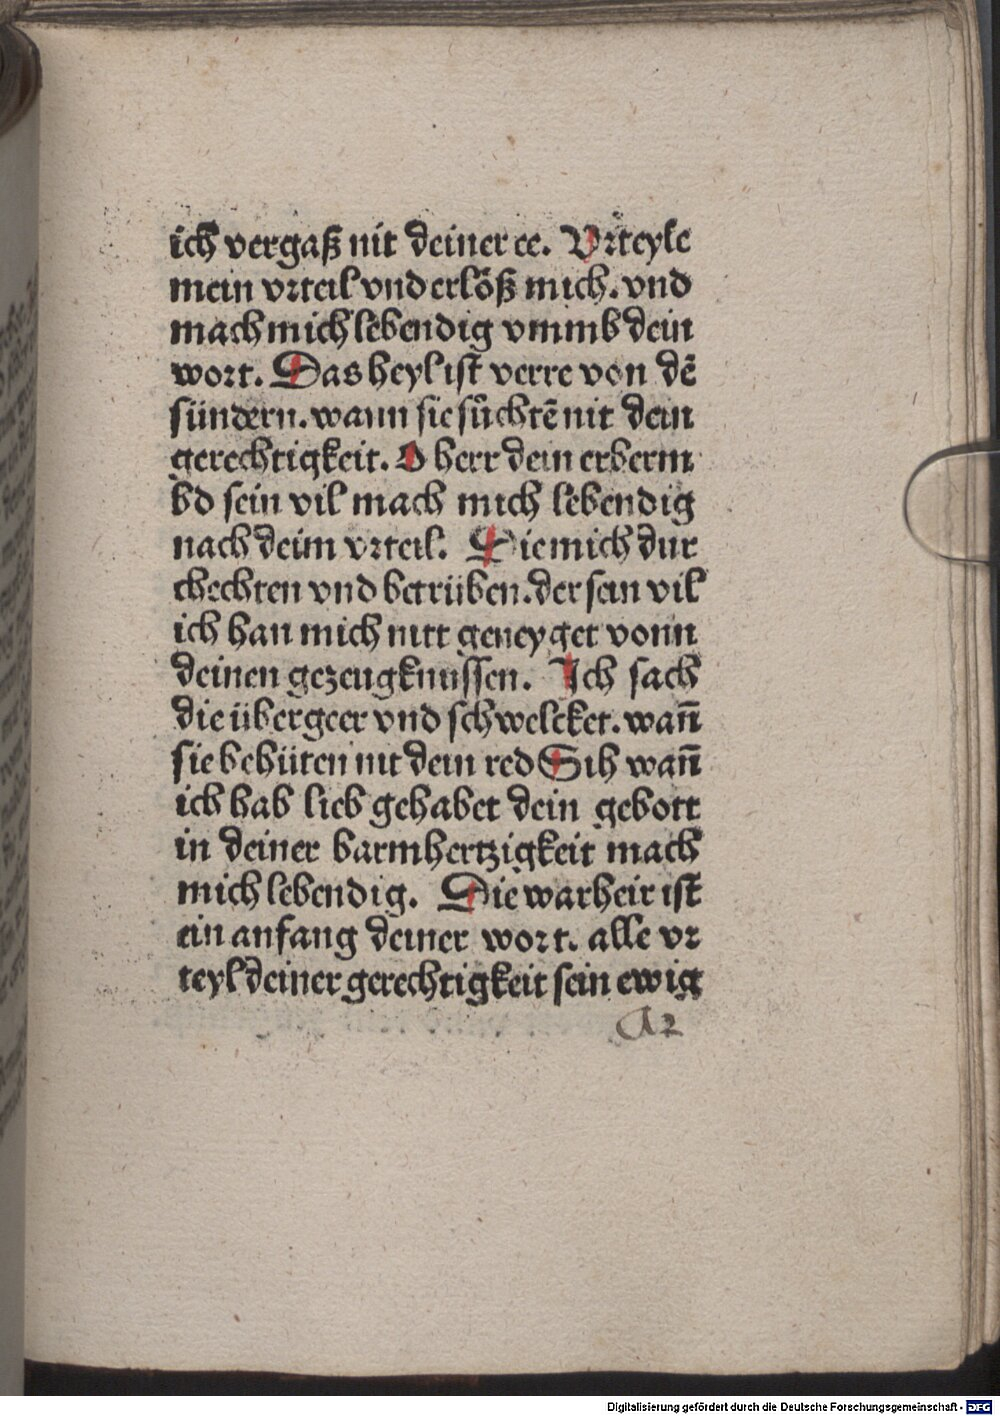 ich vergaß nit deiner ee. Vrteyle
mein vrteil vnd erlöß mich. vnd
mach mich lebendig vmmb dein
wort. Das heyl ist verre von dē
sündern. wann sie sůchtē nit dein
gerechtigkeit. O herr dein erberm
bd sein vil mach mich lebendig
nach deim vrteil. Die mich dur
chechten vnd betrüben. der sein vil
ich han mich nitt geneyget vonn
deinen gezeugknussen. Ich sach
die übergeer vnd schwelcket. wann̄
sie behüten nit dein red Sih wann̄
ich hab lieb gehabet dein gebott
in deiner barmhertzigkeit mach
mich lebendig. Die warheit ist
ein anfang deiner wort. alle vr
teyl deiner gerechtigkeit sein ewig
A2
Digitalisierung gefördert durch die Deutsche Forschungsgemeinschaft - DFG